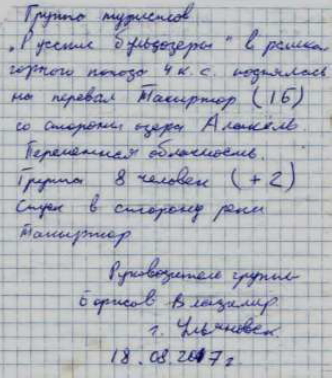 Группа туристов
"Русские бульдозеры" в рамках
горного похода 4 к.с. поднялась
на перевал Такыртор (1Б)
со стороны озера Алакель.
Переменная облачность.
Группа 8 человек (+2)
Спуск в сторону реки
Такыртор
Руководитель группы
Борисов Владимир
г. Ульяновск
18.08.2017 г.